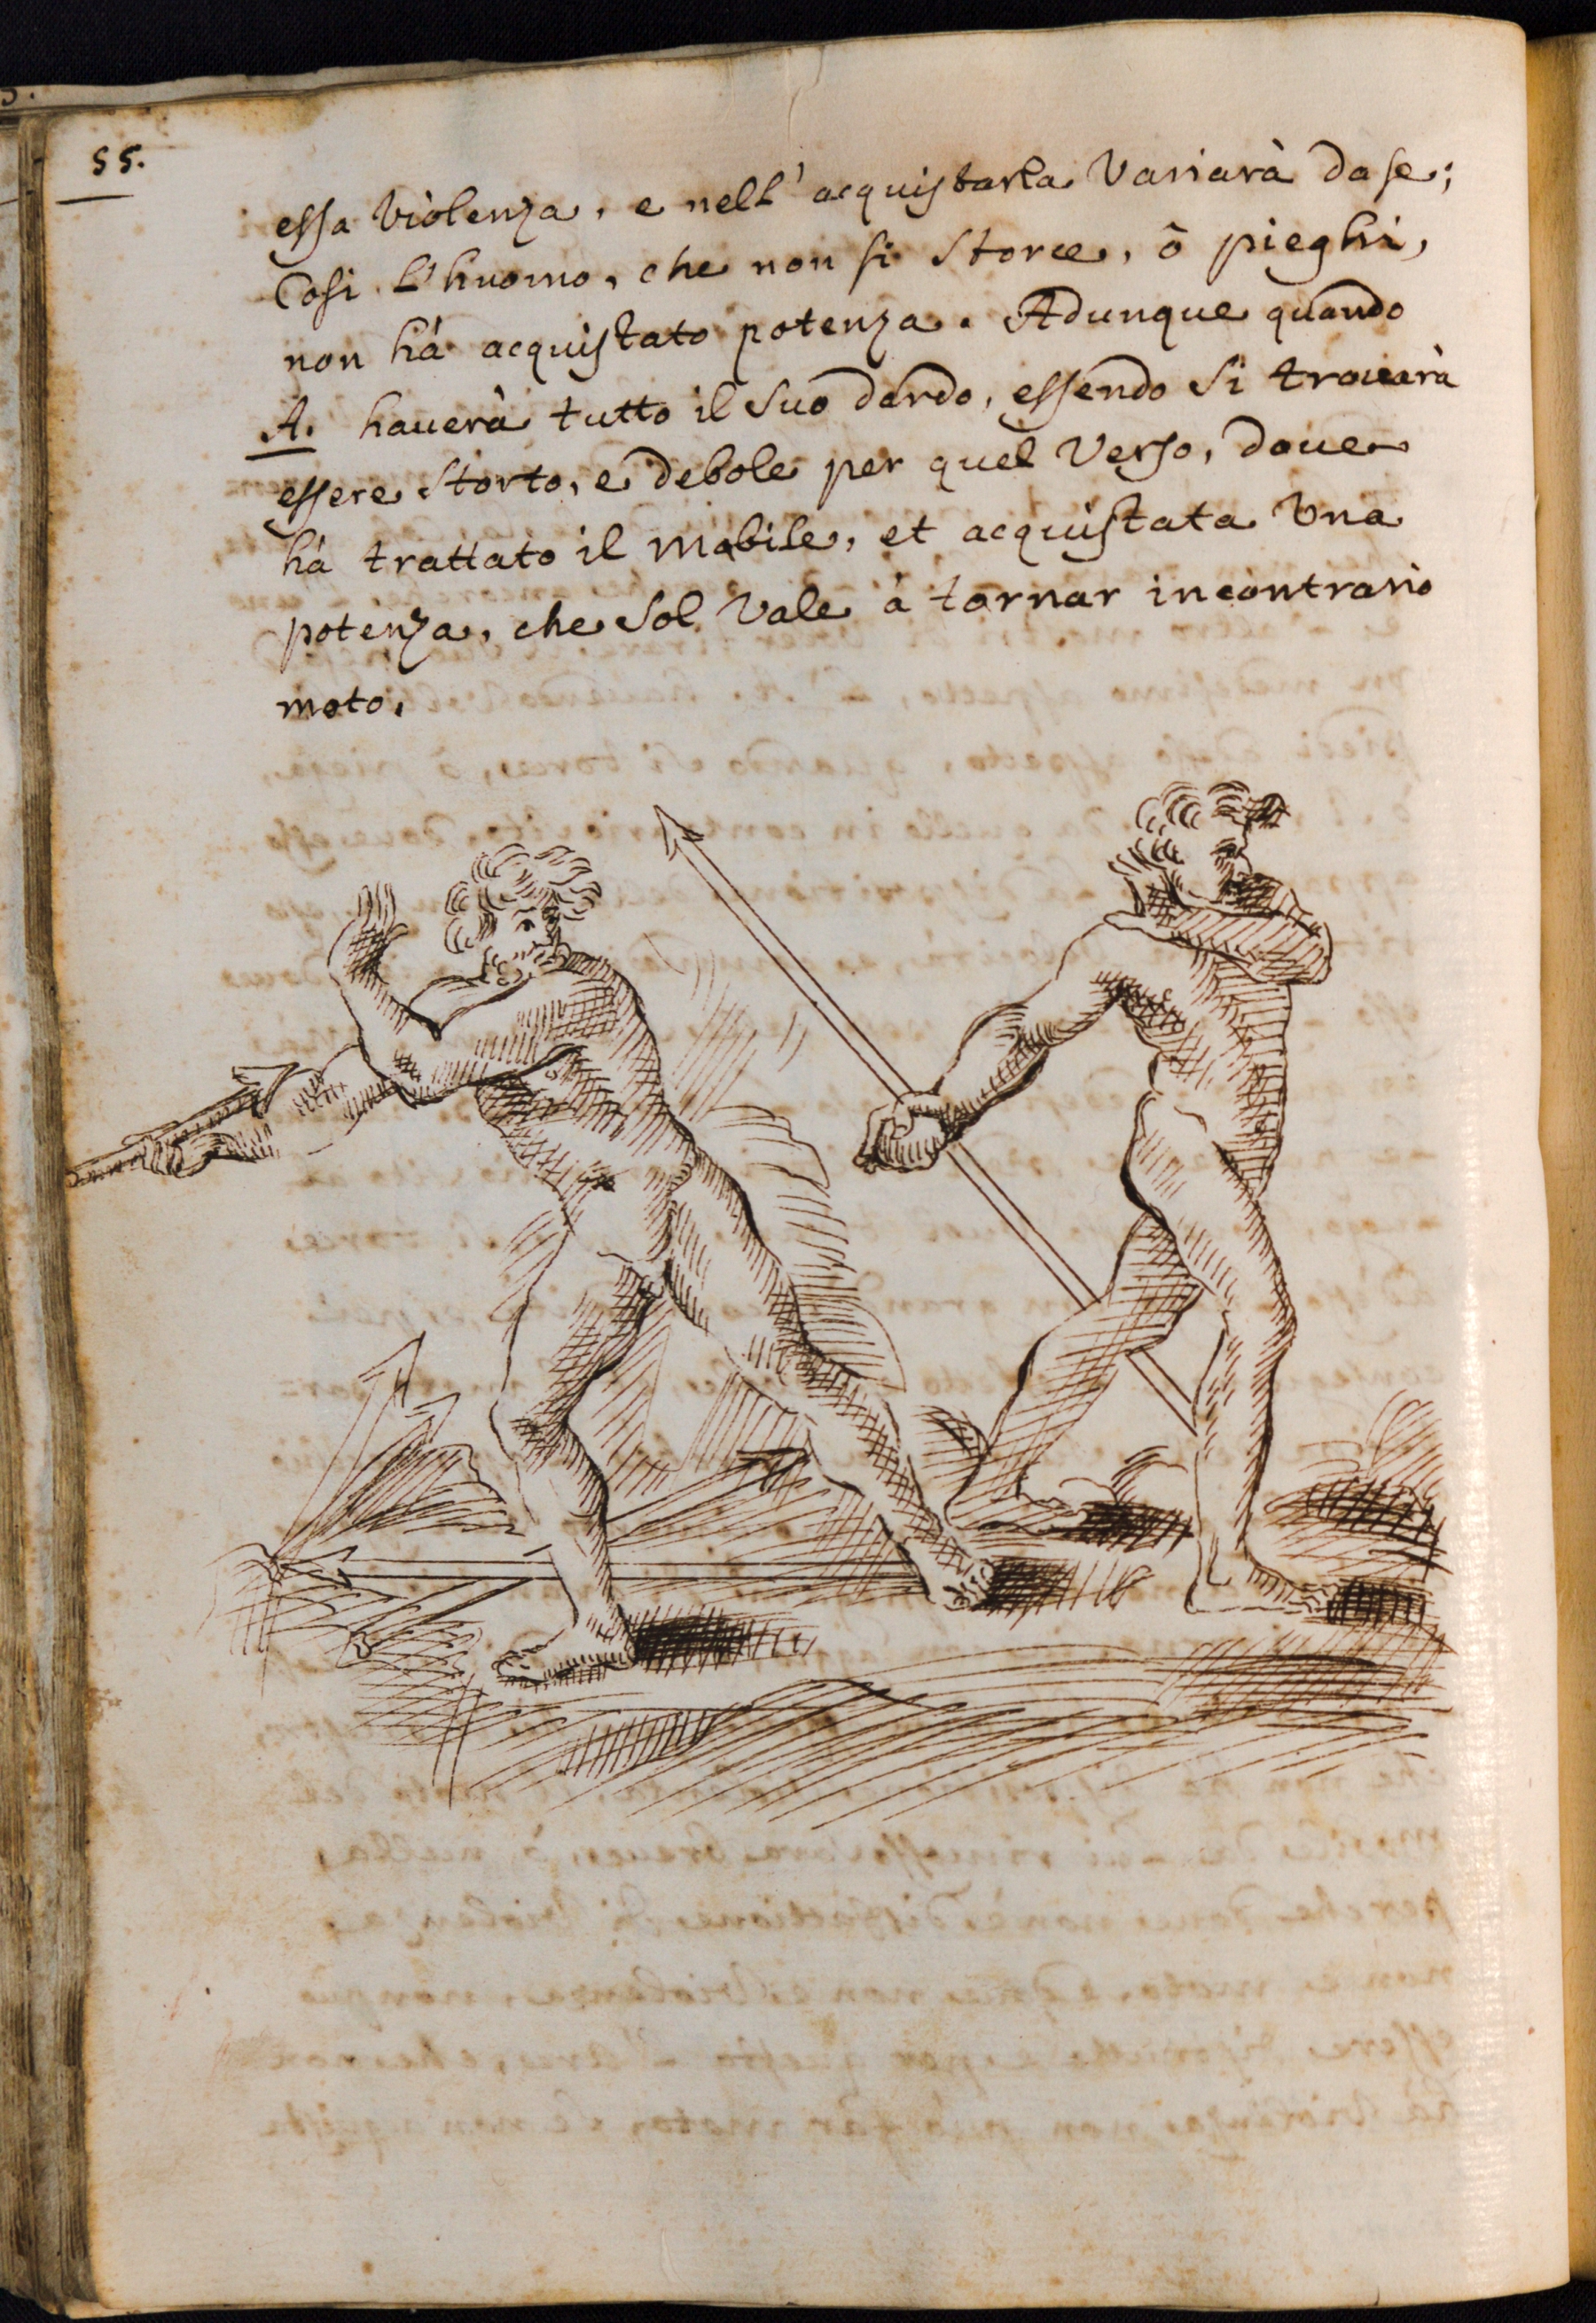 55.
essa violenza, e nell' acquistarla variarà da se;
Cosi l'huomo, che non si storce, ò pieghi,
non hà acquistato potenza. Adunque quando
A. hauerà tutto il suo dardo, essendo si trouarà
essere storto, e debole per quel verso, doue
hà trattato il mobile, et acquistata una
potenza, che sol vale à tornar incontrario
moto.